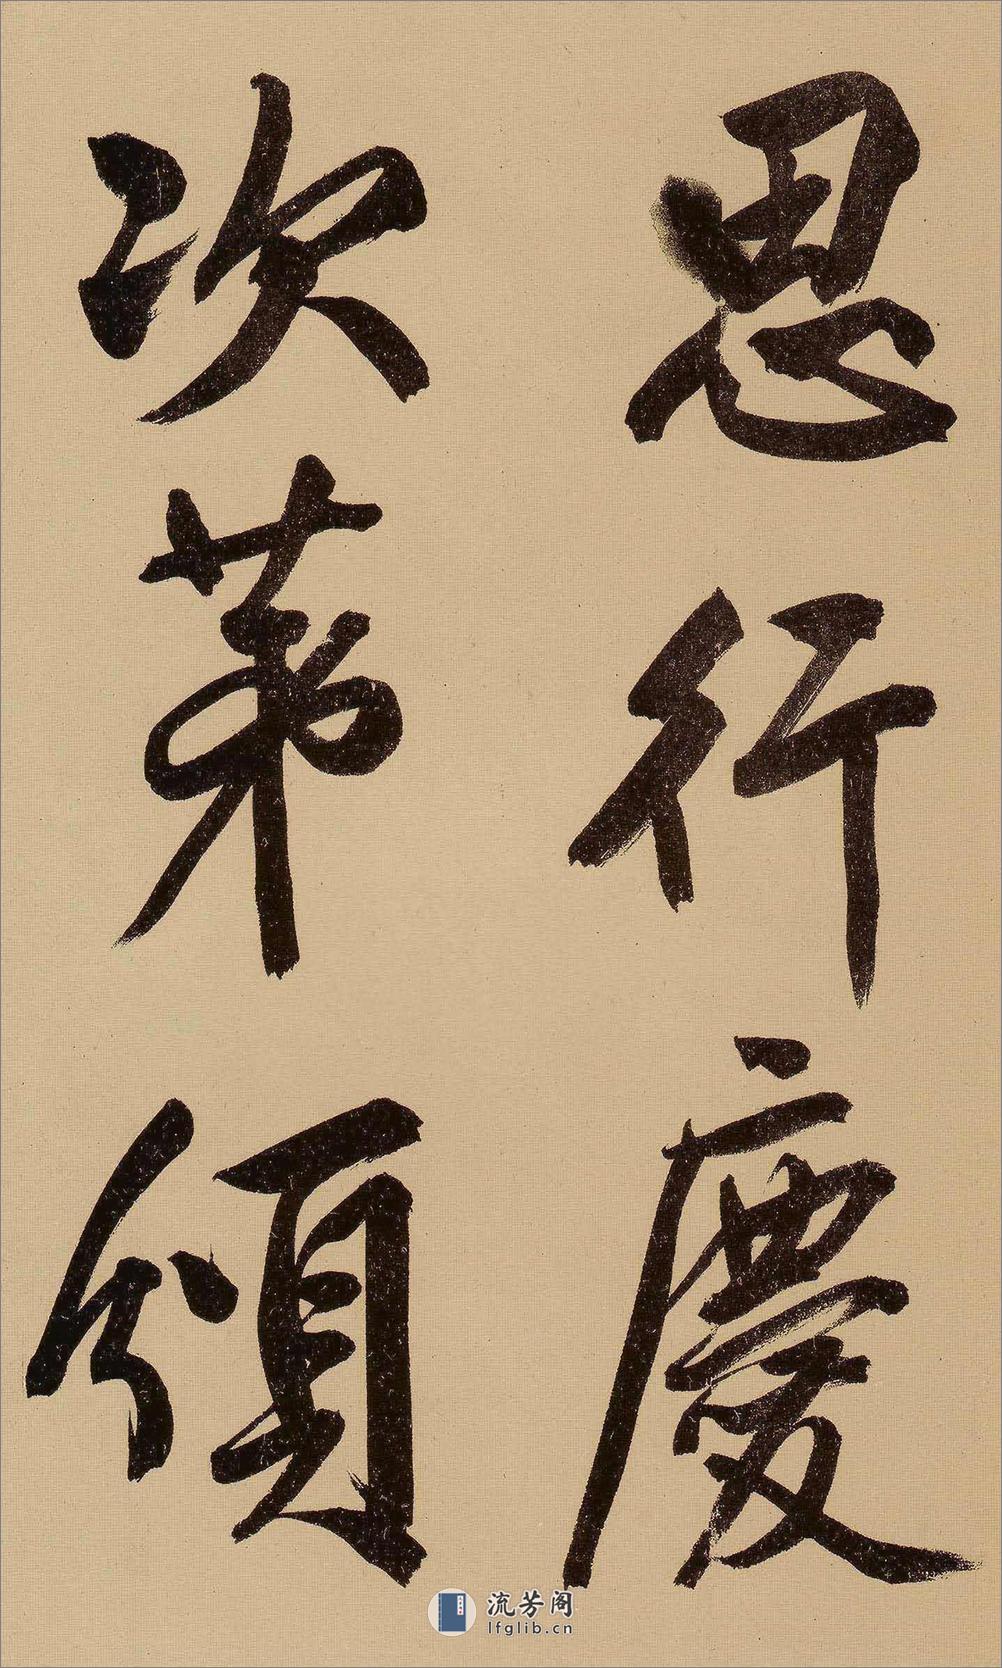 恩行慶
次第頒
流芳阁
lfglib.cn